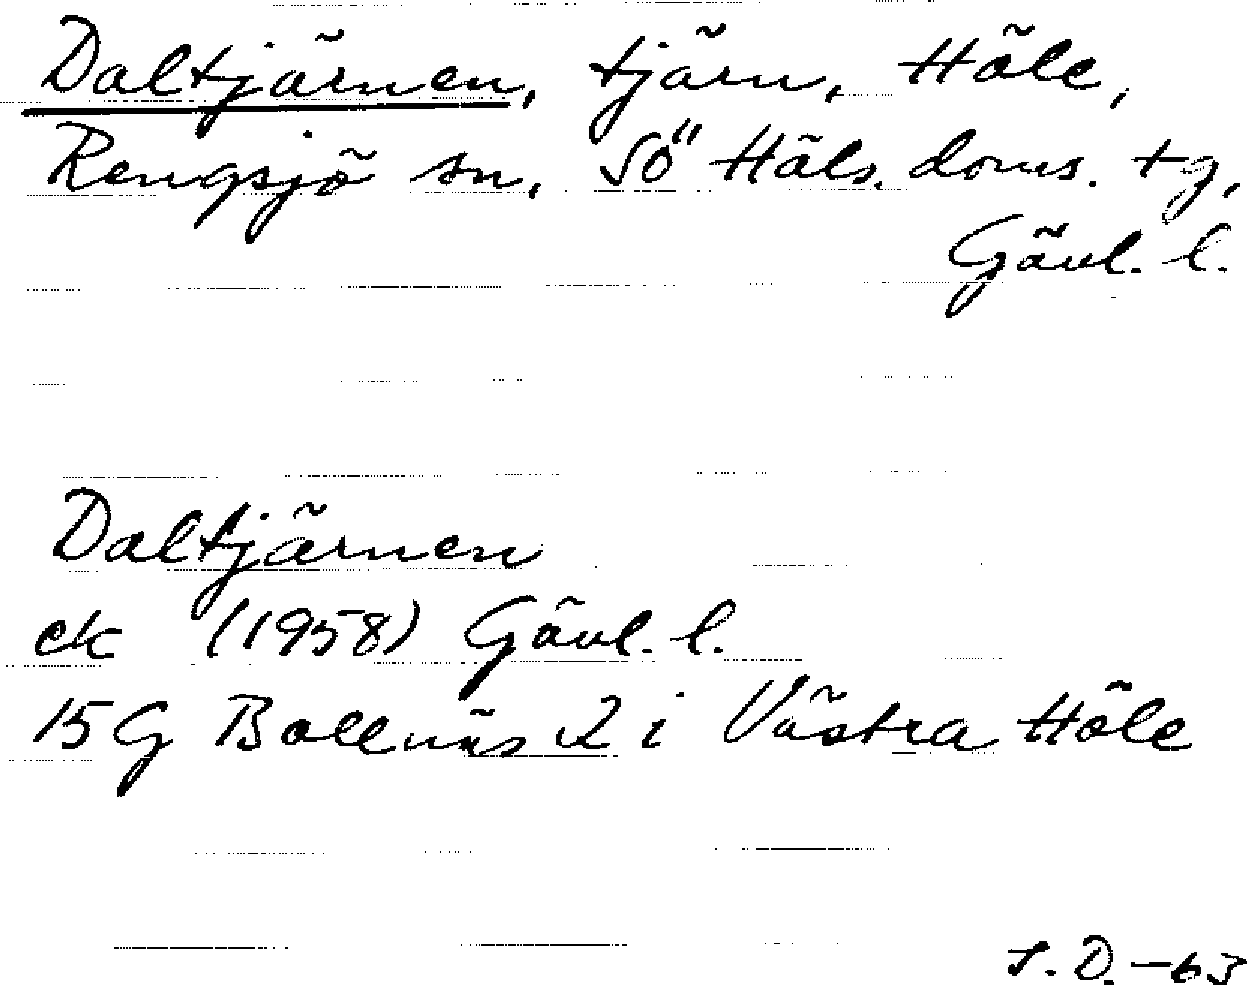 Daltjärnen, tjärn, Höle,
Rengsjö sn, Sö Häls. doms. tg,
Gävl. l.
Daltjärnen
ek (1958) Gävl. l.
15G Bollnäs 2 i Västra Höle
S. D. -63